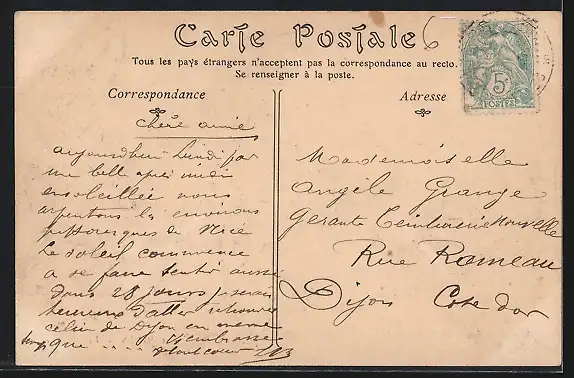 Carte Postale
6
Tous les pays étrangers n'acceptent pas la correspondance au recto.
Se renseigner à la poste.
Correspondance
Adresse
5
POSTES
chère amie
aujourdhui Lundi par
une belle apres midi
ensoleillée nous
arpentons les environs
pittoresques de Nice
le soleil commence
a se faire sentir aussi
dans 28 jours je serai
heureux d'aller retrouver
celui de Dijon en meme
temps que .... 
t'embrasse
Mademoiselle
Angèle Grange
Gerante Teinturerie Nouvelle
Rue Rameau
Dijon Cote d'or